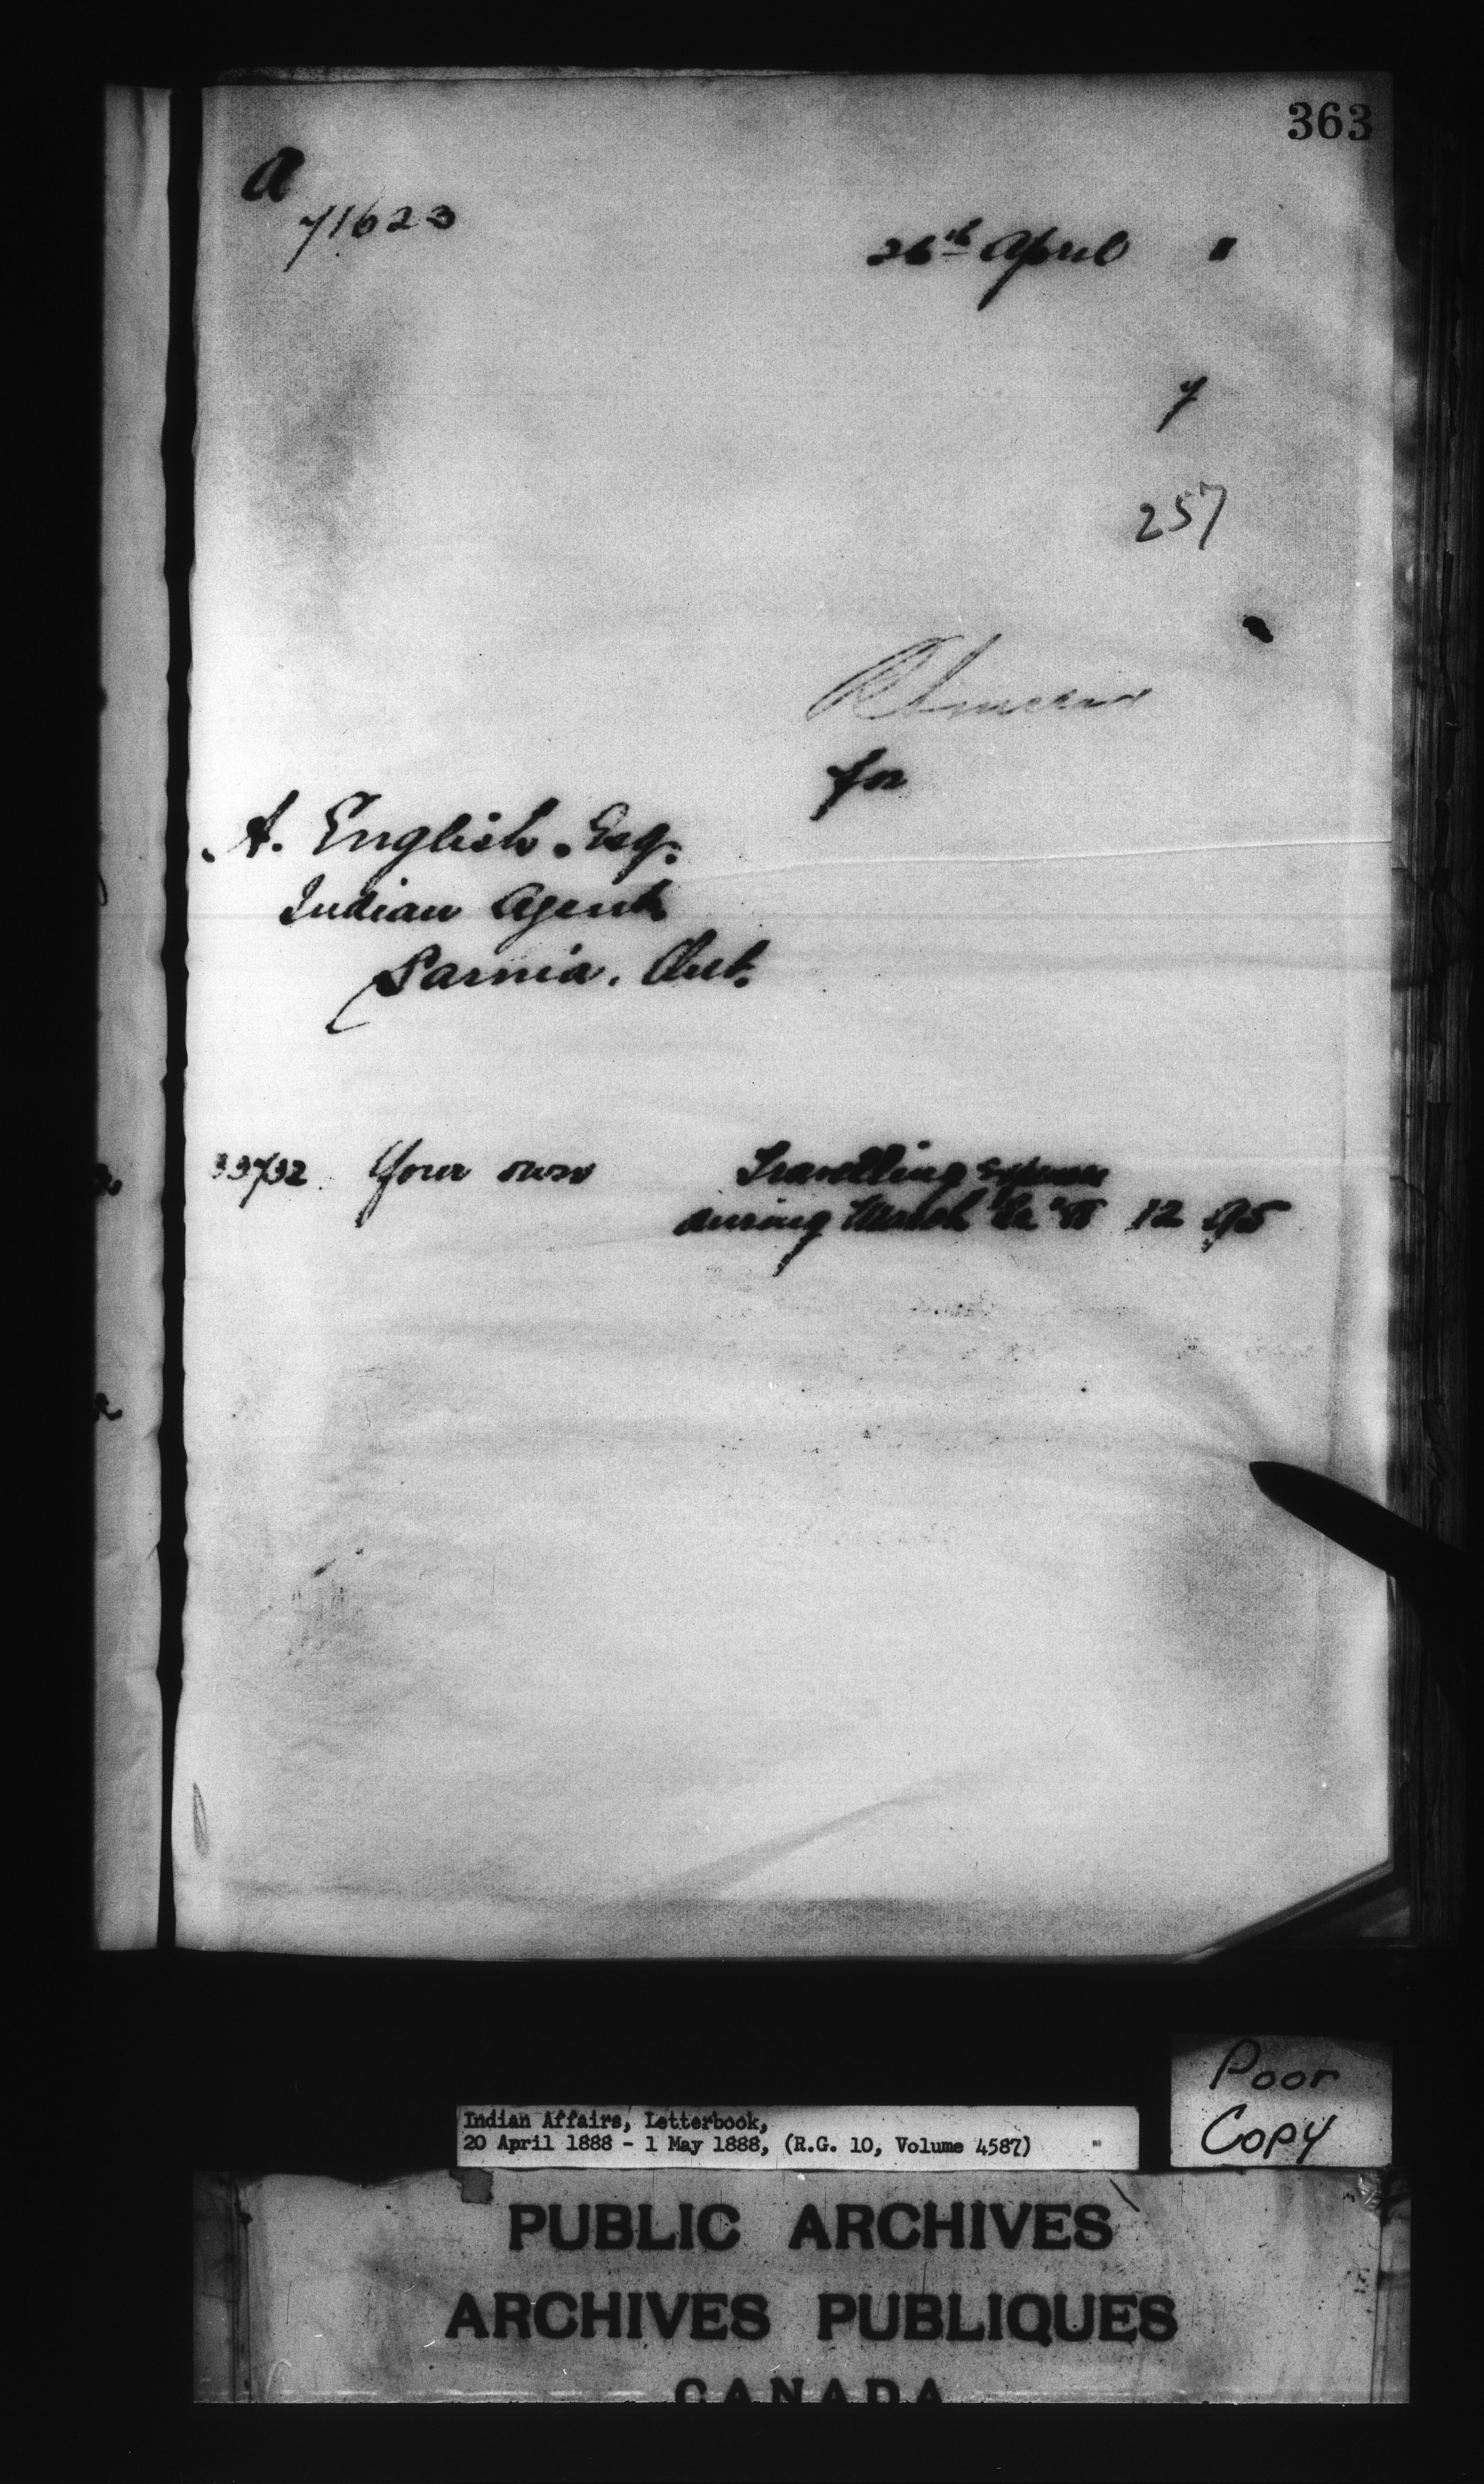 363
A
71623
26th April "
7
257
for
A. English. Esq.
Indian Agent
Sarnia. Ont.
33732 Your own Travelling Expenses
during March 12 95
Poor
Copy
Indian Affairs, Letterbook,
20 April 1888 - 1 May 1888, (R.G. 10, Volume 4587)
PUBLIC ARCHIVES
ARCHIVES PUBLIQUES
CANADA